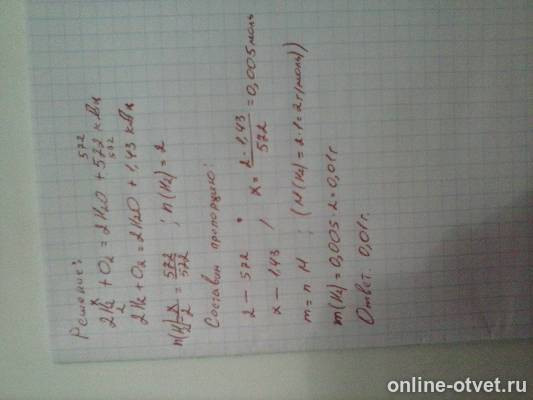 Решение:
572
2H₂ + O₂ = 2H₂O + 572 кДж
x
2
572
2H₂ + O₂ = 2H₂O + 1,43 кДж
n(H₂) x/2 = 572/572 ; n(H₂) = 2
Составим пропорцию:
2 — 572
x — 1,43 / x = 2 · 1,43 / 572 = 0,005 моль
m = n · M ; (M(H₂) = 2 · 1 = 2 г/моль))
m(H₂) = 0,005 · 2 = 0,01 г
Ответ. 0,01 г.
online-otvet.ru